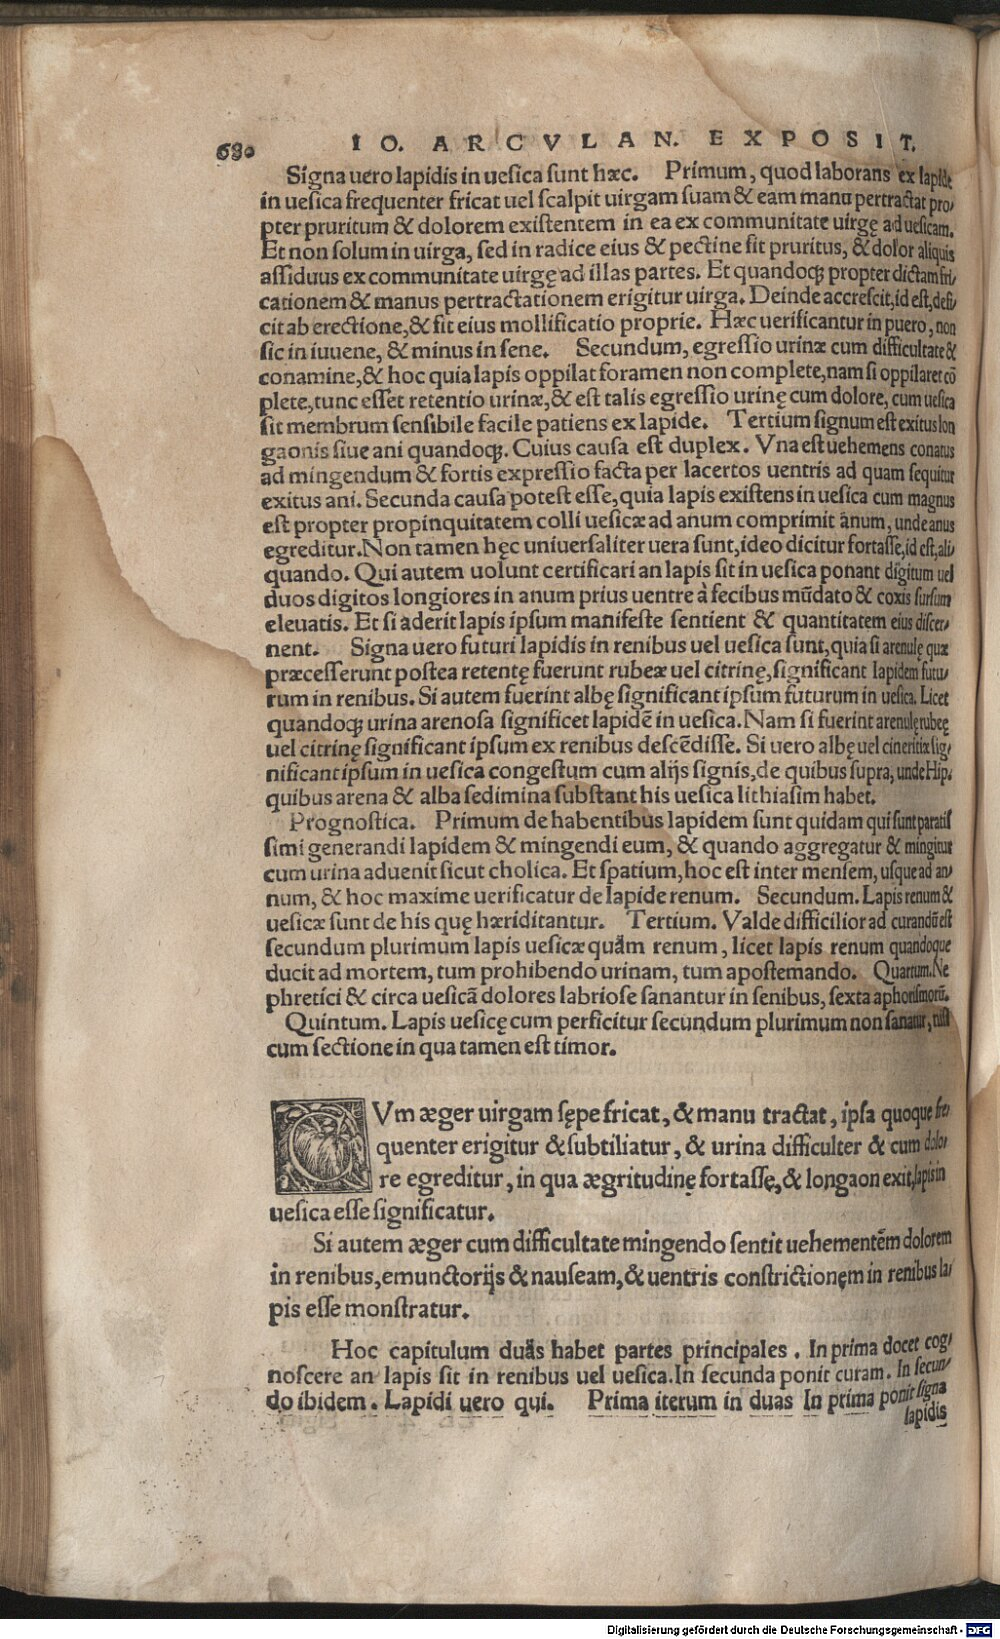 680 IO. ARCVLAN. EXPOSIT.
Signa uero lapidis in uesica sunt hæc. Primum, quod laborans ex lapide
in uesica frequenter fricat uel scalpit uirgam suam & eam manu pertractat pro/
pter pruritum & dolorem existentem in ea ex communitate uirgę ad uesicam.
Et non solum in uirga, sed in radice eius & pectine fit pruritus, & dolor aliquis
assiduus ex communitate uirgę ad illas partes. Et quandoq; propter dictam fri/
cationem & manus pertractationem erigitur uirga. Deinde accrescit, id est, defi/
cit ab erectione, & fit eius mollificatio proprie. Hæc uerificantur in puero, non
sic in iuuene, & minus in sene. Secundum, egressio urinæ cum difficultate &
conamine, & hoc quia lapis oppilat foramen non complete, nam si oppilaret cō
plete, tunc esset retentio urinæ, & est talis egressio urinę cum dolore, cum uesica
sit membrum sensibile facile patiens ex lapide. Tertium signum est exitus lon
gaonis siue ani quandoq;. Cuius causa est duplex. Vna est uehemens conatus
ad mingendum & fortis expressio facta per lacertos uentris ad quam sequitur
exitus ani. Secunda causa potest esse, quia lapis existens in uesica cum magnus
est propter propinquitatem colli uesicæ ad anum comprimit ànum, unde anus
egreditur. Non tamen hęc uniuersaliter uera sunt, ideo dicitur fortasse, id est, ali/
quando. Qui autem uolunt certificari an lapis sit in uesica ponant digitum uel
duos digitos longiores in anum prius uentre à fecibus mūdato & coxis sursum
eleuatis. Et si aderit lapis ipsum manifeste sentient & quantitatem eius discer/
nent. Signa uero futuri lapidis in renibus uel uesica sunt, quia si arenulę quæ
præcesserunt postea retentę fuerunt rubeæ uel citrinę, significant lapidem futu/
rum in renibus. Si autem fuerint albę significant ipsum futurum in uesica. Licet
quandoq; urina arenosa significet lapidē in uesica. Nam si fuerint arenulę rubeę
uel citrinę significant ipsum ex renibus descēdisse. Si uero albę uel cineritiæ sig/
nificant ipsum in uesica congestum cum alijs signis, de quibus supra, unde Hip.
quibus arena & alba sedimina substant his uesica lithiasim habet.
Prognostica. Primum de habentibus lapidem sunt quidam qui sunt paratis
simi generandi lapidem & mingendi eum, & quando aggregatur & mingitur
cum urina aduenit sicut cholica. Et spatium, hoc est inter mensem, usque ad an/
num, & hoc maxime uerificatur de lapide renum. Secundum. Lapis renum &
uesicæ sunt de his quę hæriditantur. Tertium. Valde difficilior ad curandū est
secundum plurimum lapis uesicæ quàm renum, licet lapis renum quandoque
ducit ad mortem, tum prohibendo urinam, tum apostemando. Quartum. Ne
phretici & circa uesicā dolores labriose sanantur in senibus, sexta aphorismorū.
Quintum. Lapis uesicę cum perficitur secundum plurimum non sanatur, nisi
cum sectione in qua tamen est timor.
CVm æger uirgam sępe fricat, & manu tractat, ipsa quoque fre/
quenter erigitur & subtiliatur, & urina difficulter & cum dolo/
re egreditur, in qua ægritudinę fortassę, & longaon exit, lapis in
uesica esse significatur.
Si autem æger cum difficultate mingendo sentit uehementēm dolorem
in renibus, emunctorijs & nauseam, & uentris constrictionęm in renibus la/
pis esse monstratur.
Hoc capitulum duàs habet partes principales. In prima docet cog/
noscere an lapis sit in renibus uel uesica. In secunda ponit curam. In secun/
do ibidem. Lapidi uero qui. Prima iterum in duas In prima ponit signa
lapidis
Digitalisierung gefördert durch die Deutsche Forschungsgemeinschaft - DFG